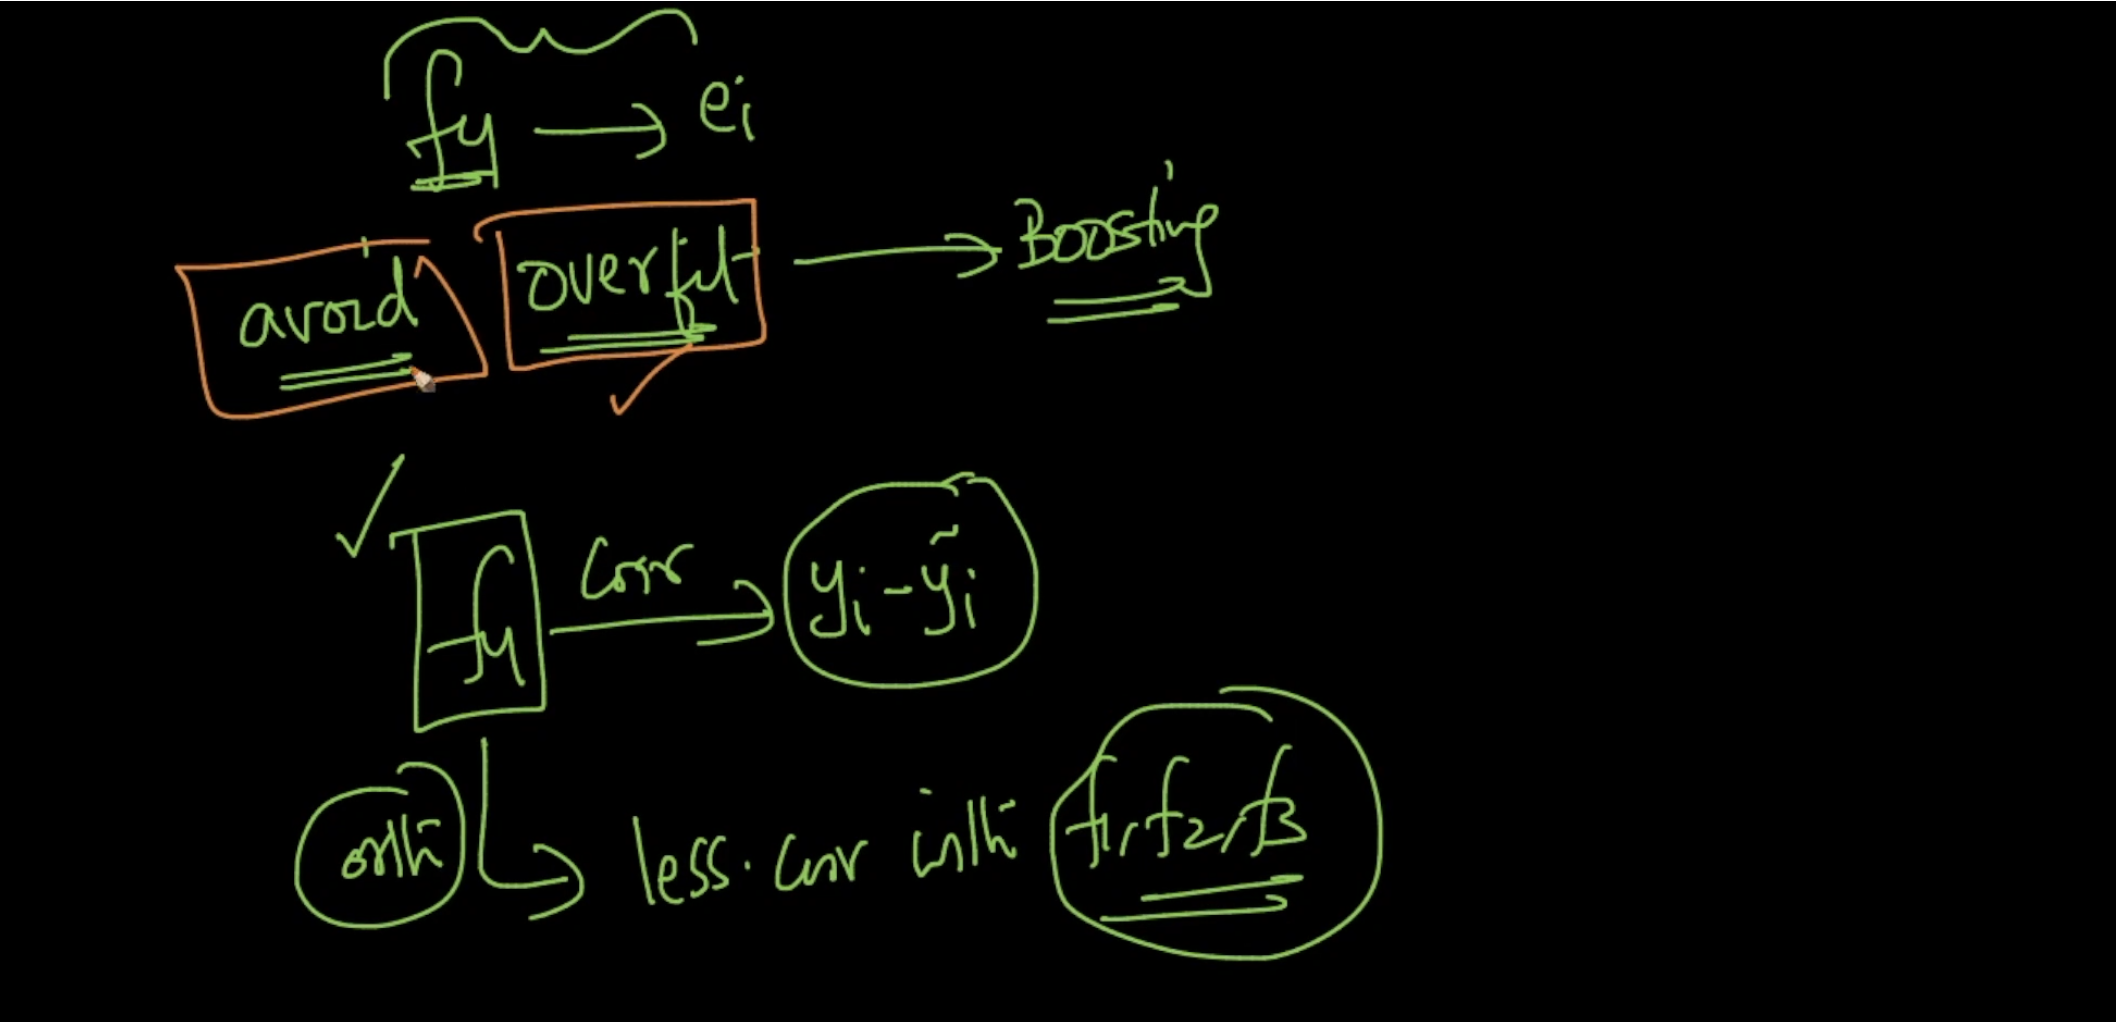 f4 → ei
avoid overfit → Boosting
f4 corr → yi - ỹi
orth less. corr with f1, f2, f3